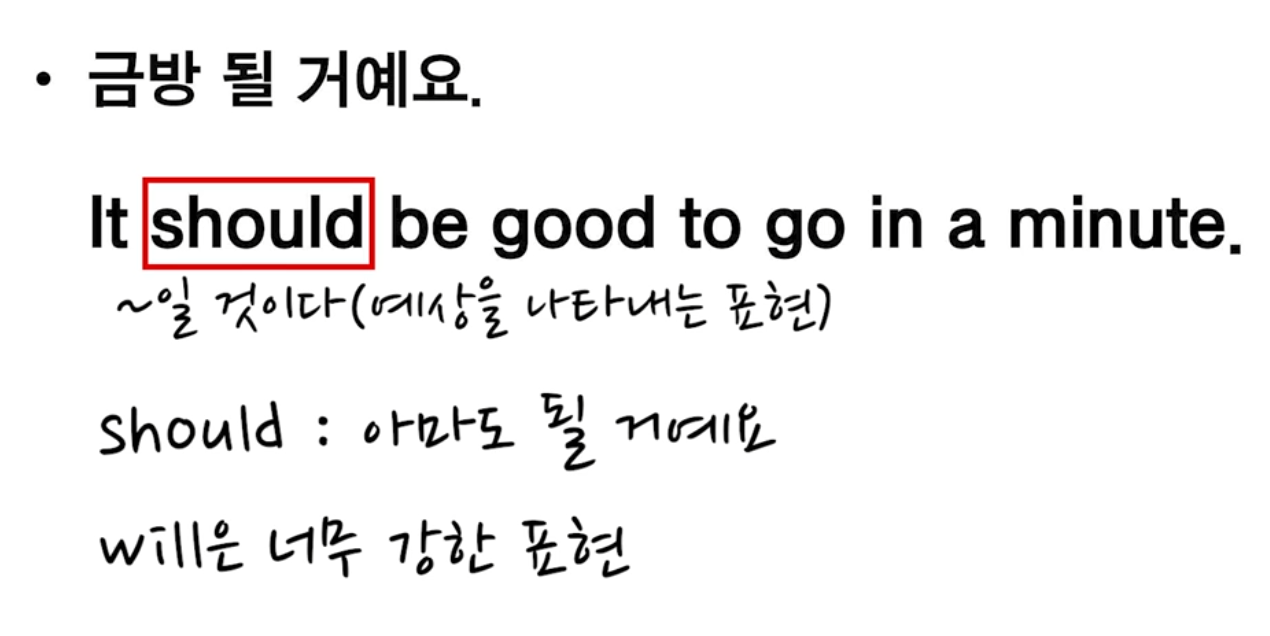 • 금방 될 거예요.
It should be good to go in a minute.
~일 것이다(예상을 나타내는 표현)
should : 아마도 될 거예요
will은 너무 강한 표현